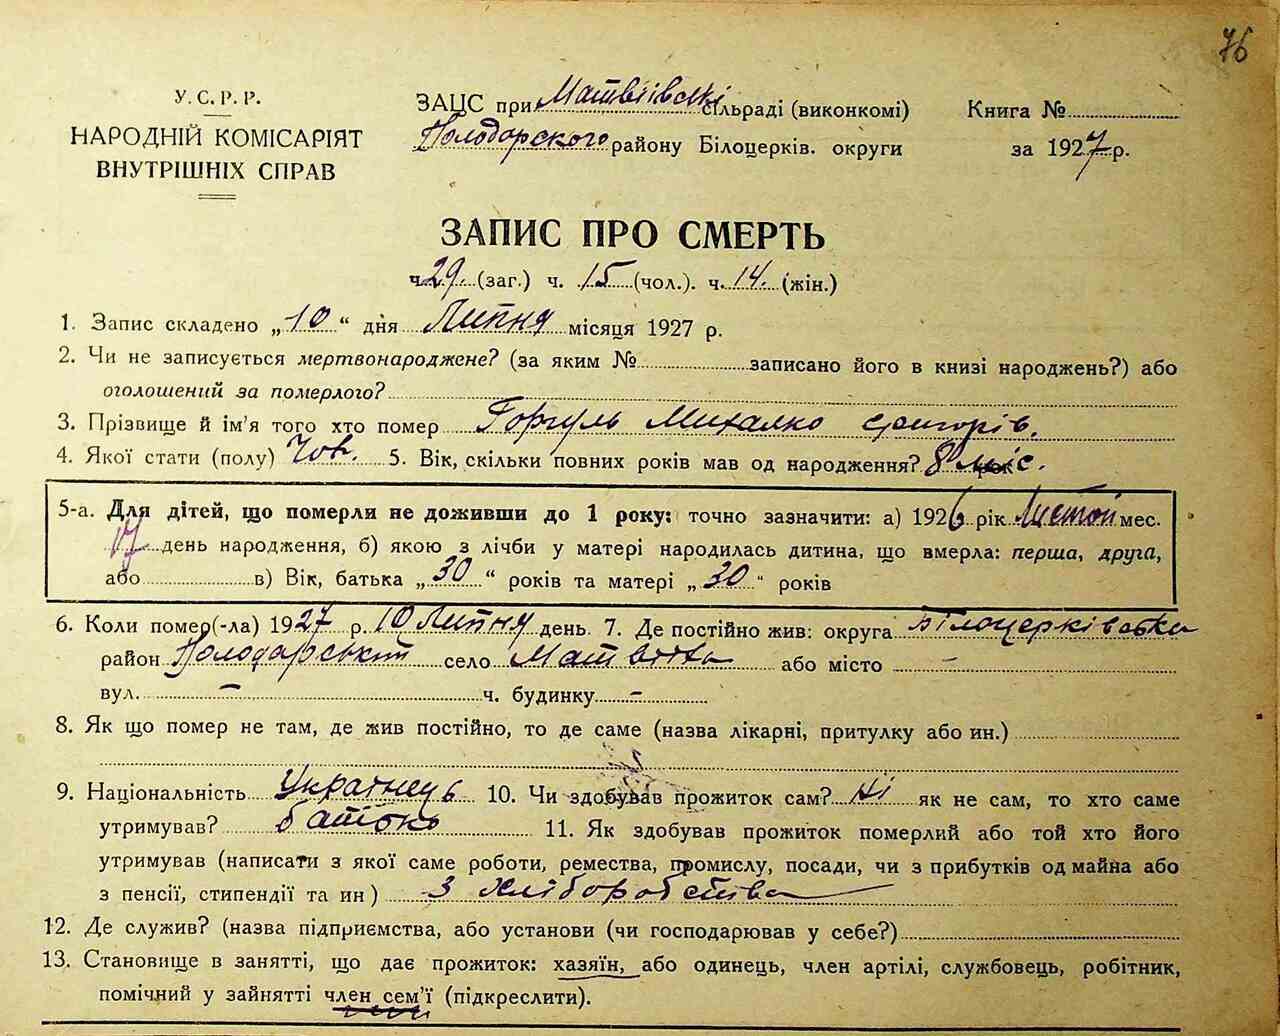 76
У.С.Р.Р.
НАРОДНІЙ КОМІСАРІЯТ
ВНУТРІШНІХ СПРАВ
ЗАЦС при Матвіївські сільраді (виконкомі)
Володарского району Білоцерків. округи
Книга №
за 1927 р.
ЗАПИС ПРО СМЕРТЬ
ч. 29 (заг.) ч. 15 (чол.). ч. 14. (жін.)
1. Запис складено „10“ дня Липня місяця 1927 р.
2. Чи не записується мертвонароджене? (за яким № записано його в книзі народжень?) або
оголошений за померлого?
3. Прізвище й ім'я того хто помер Горгуль Михалко Григорів.
4. Якої стати (полу) Чов. 5. Вік, скільки повних років мав од народження? 8 міс.
5-а. Для дітей, що померли не доживши до 1 року: точно зазначити: а) 1926 рік Листоп мес.
17 день народження, б) якою з лічби у матері народилась дитина, що вмерла: перша, друга,
або в) Вік, батька „30“ років та матері „30“ років
6. Коли помер(-ла) 1927 р. 10 Липня день. 7. Де постійно жив: округа Білоцерківська
район Володарський село Матвіиха або місто –
вул. – ч. будинку –
8. Як що помер не там, де жив постійно, то де саме (назва лікарні, притулку або ин.)
9. Національність Украінец 10. Чи здобував прожиток сам? Ні як не сам, то хто саме
утримував? батько 11. Як здобував прожиток померлий або той хто його
утримував (написати з якої саме роботи, ремества, промислу, посади, чи з прибутків од майна або
з пенсії, стипендії та ин) З хліборобства
12. Де служив? (назва підприємства, або установи (чи господарював у себе?)
13. Становище в занятті, що дає прожиток: хазяїн, або одинець, член артілі, службовець, робітник,
помічний у зайнятті член сем'ї (підкреслити).